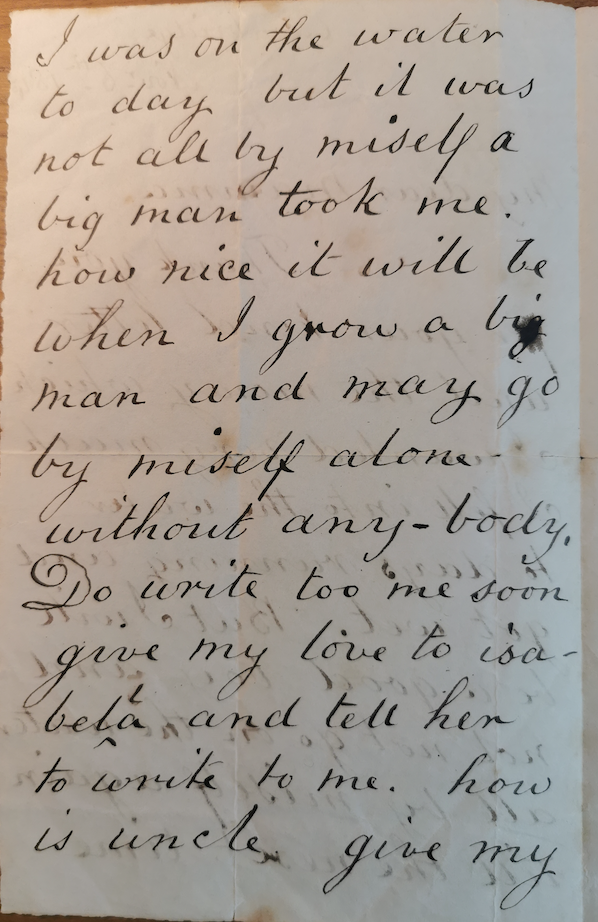 I was on the water
to day but it was
not all by miself a
big man took me.
how nice it will be
when I grow a big
man and may go
by miself alone -
without any-body.
Do write too me soon
give my love to isa-
bela and tell her
to write to me. how
is uncle. give my